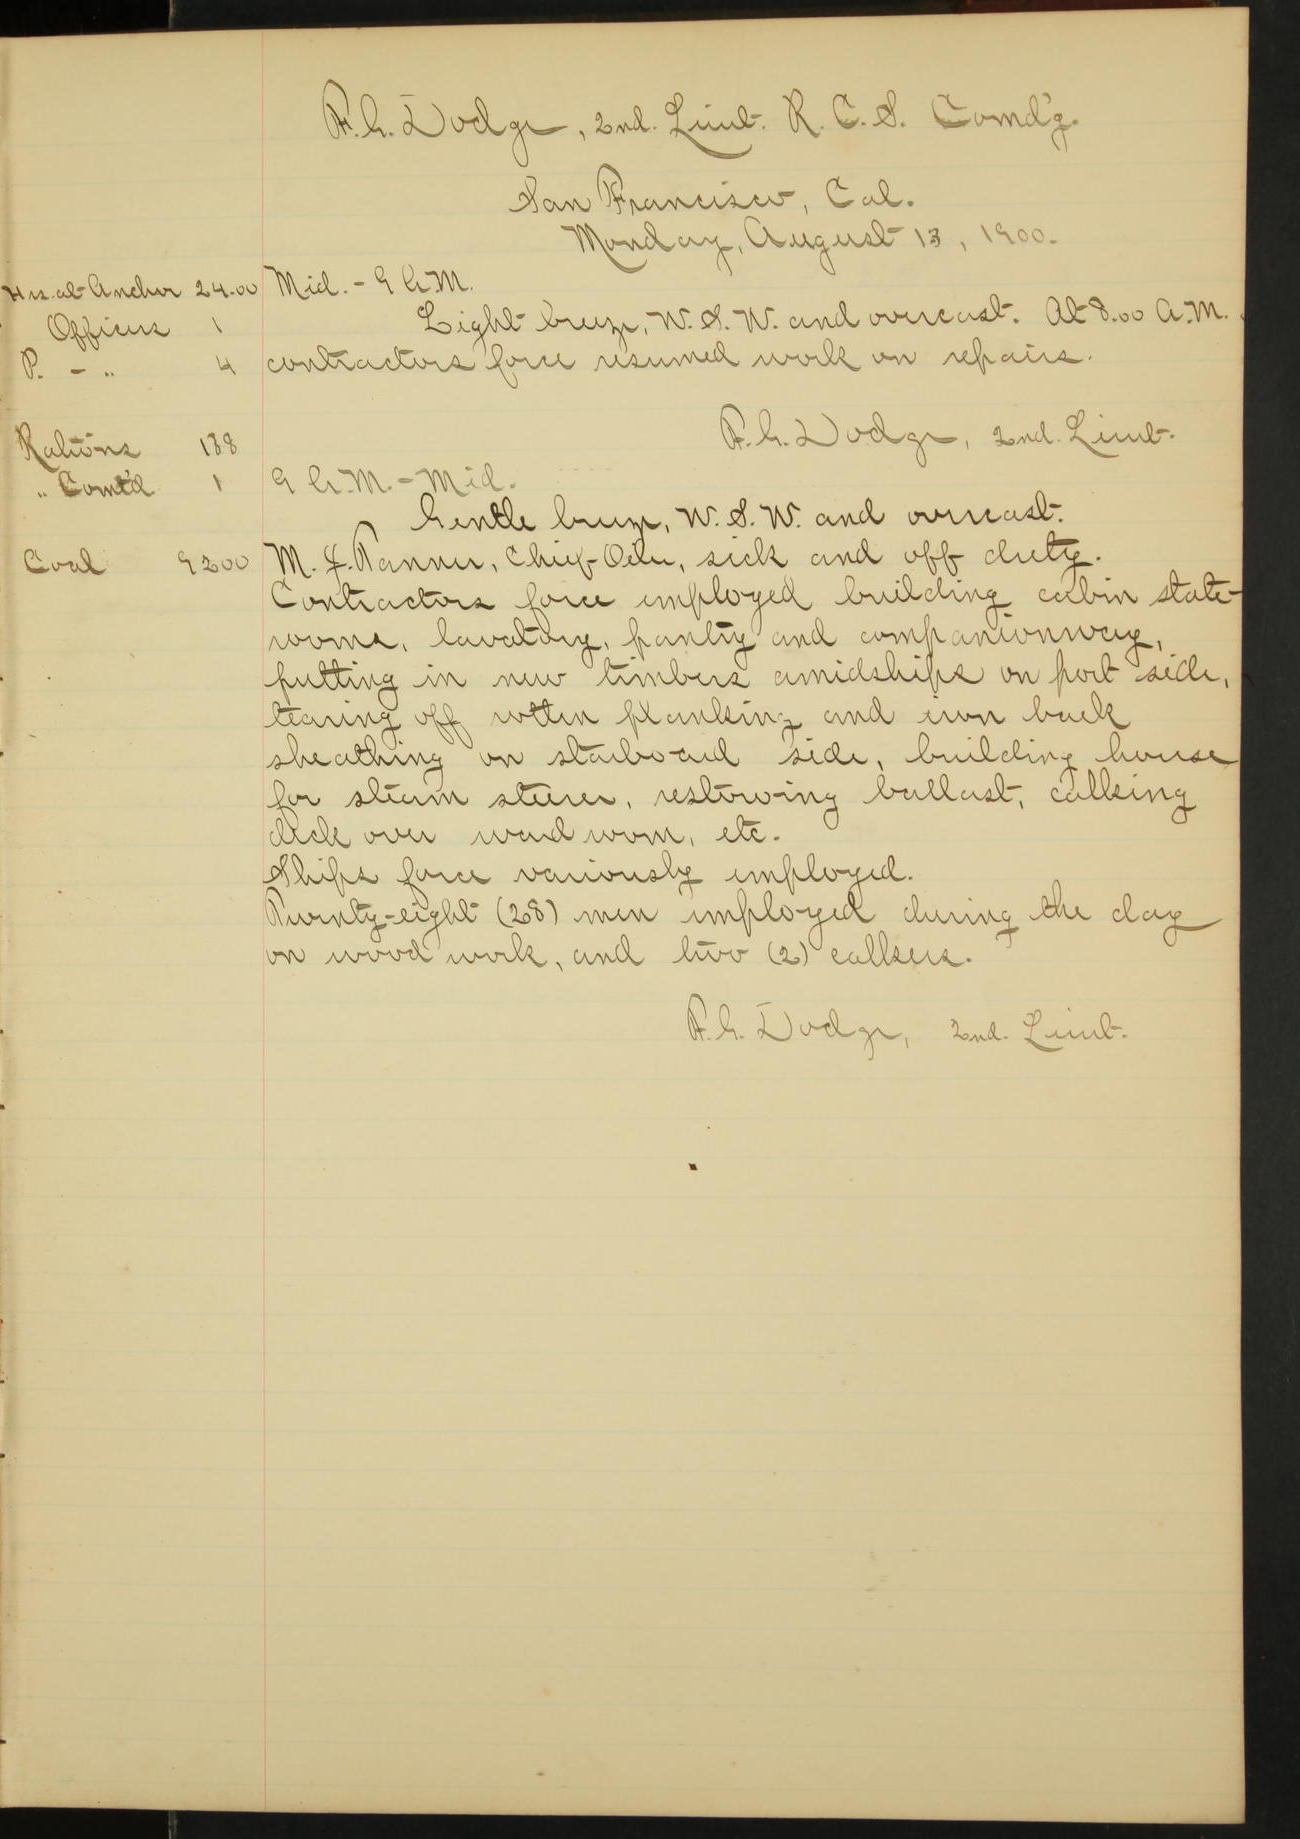 F. G. Dodge, 2nd. Lieut. R. C. S. Comd'g.
San Francisco, Cal.
Monday, August 13, 1900.
Hrs. at Anchor 24.00 Mid. - 9 A.M.
Officers 1 Light breeze, W. S. W. and overcast. At 8.00 A.M.
P. - " 4 contractors force resumed work on repairs.
F. G. Dodge, 2nd. Lieut.
Rations 138
" Com't'd 1 9 A.M. - Mid.
Gentle breeze, W. S. W. and overcast.
Coal 9200 M. J. Tanner, Chief-Oiler, sick and off duty.
Contractors force employed building cabin state-
rooms, lavatory, pantry and companionway,
putting in new timbers amidships on port side,
tearing off rotten planking and iron bark
sheathing on starboard side, building house
for steam steerer, restowing ballast, calking
deck over ward room, etc.
Ships force variously employed.
Twenty-eight (28) men employed during the day
on wood work, and two (2) calkers.
F. G. Dodge, 2nd. Lieut.